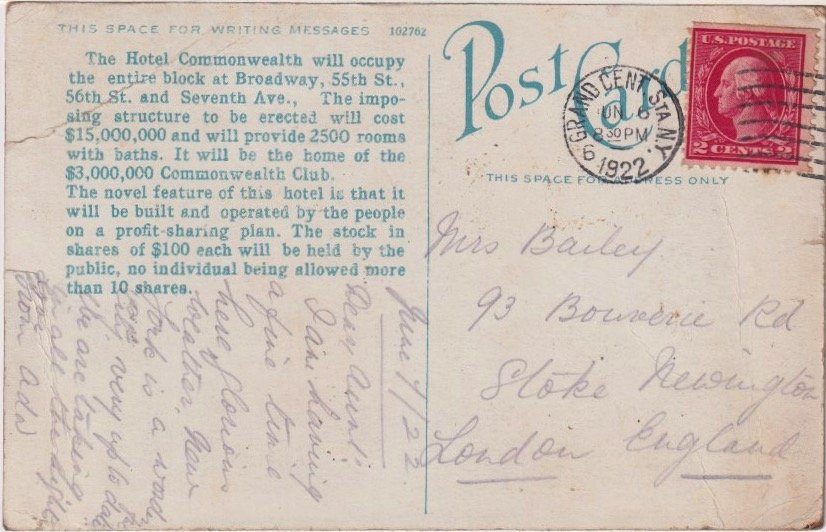 THIS SPACE FOR WRITING MESSAGES 102762
The Hotel Commonwealth will occupy
the entire block at Broadway, 55th St.,
56th St. and Seventh Ave., The impo-
sing structure to be erected will cost
$15,000,000 and will provide 2500 rooms
with baths. It will be the home of the
$3,000,000 Commonwealth Club.
The novel feature of this hotel is that it
will be built and operated by the people
on a profit-sharing plan. The stock in
shares of $100 each will be held by the
public, no individual being allowed more
than 10 shares.
June 7/22
Dear Aunt
I am having
a fine time
here glorious
weather. New
York is a
very up to date
We are taking
in all the sights
love
from Ada
Post Card
GRAND CENT. STA. N.Y.
JUN 8
8 30 PM
1922
U.S. POSTAGE
2 CENTS 2
THIS SPACE FOR ADDRESS ONLY
Mrs Bailey
93 Bouverie Rd
Stoke Newington
London England